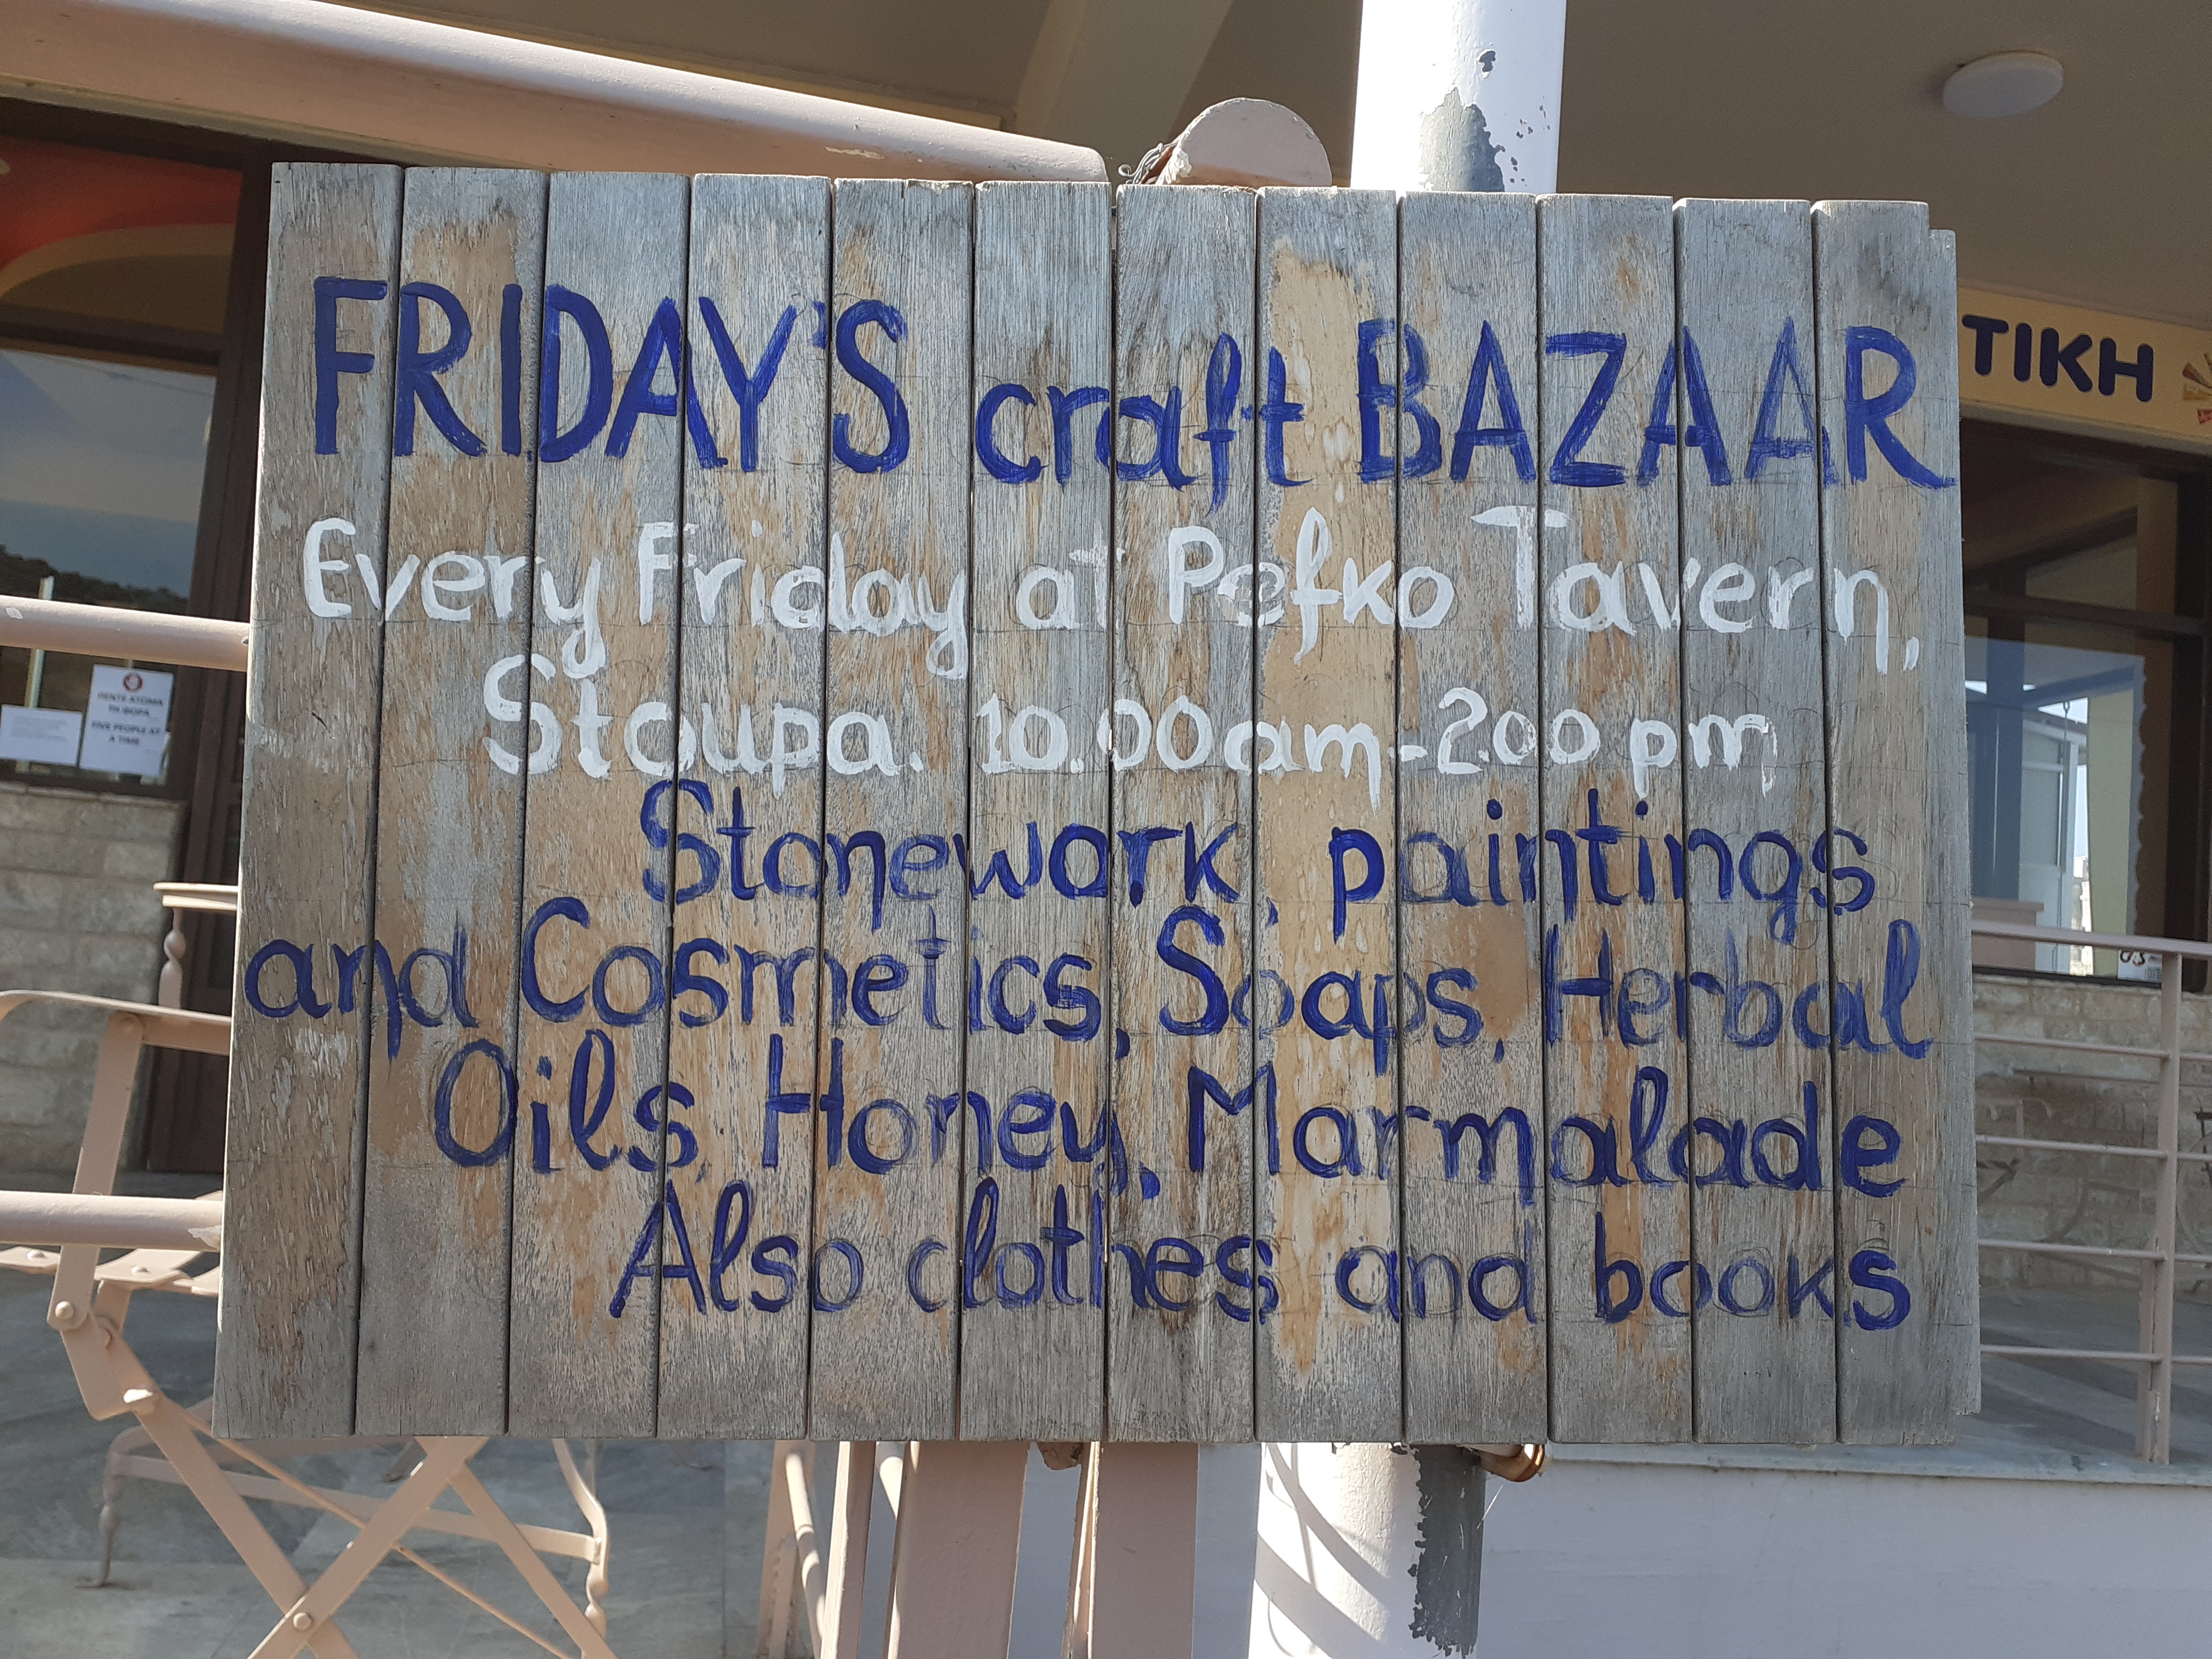 FRIDAY'S craft BAZAAR
Every Friday at Pefko Tavern,
Stoupa. 10.00am-2.00 pm
Stonework, paintings
and Cosmetics, Soaps, Herbal
Oils, Honey, Marmalade
Also clothes and books
ΤΙΚΗ
ΠΕΝΤΕ ΑΤΟΜΑ
ΤΗ ΦΟΡΑ
FIVE PEOPLE AT
A TIME